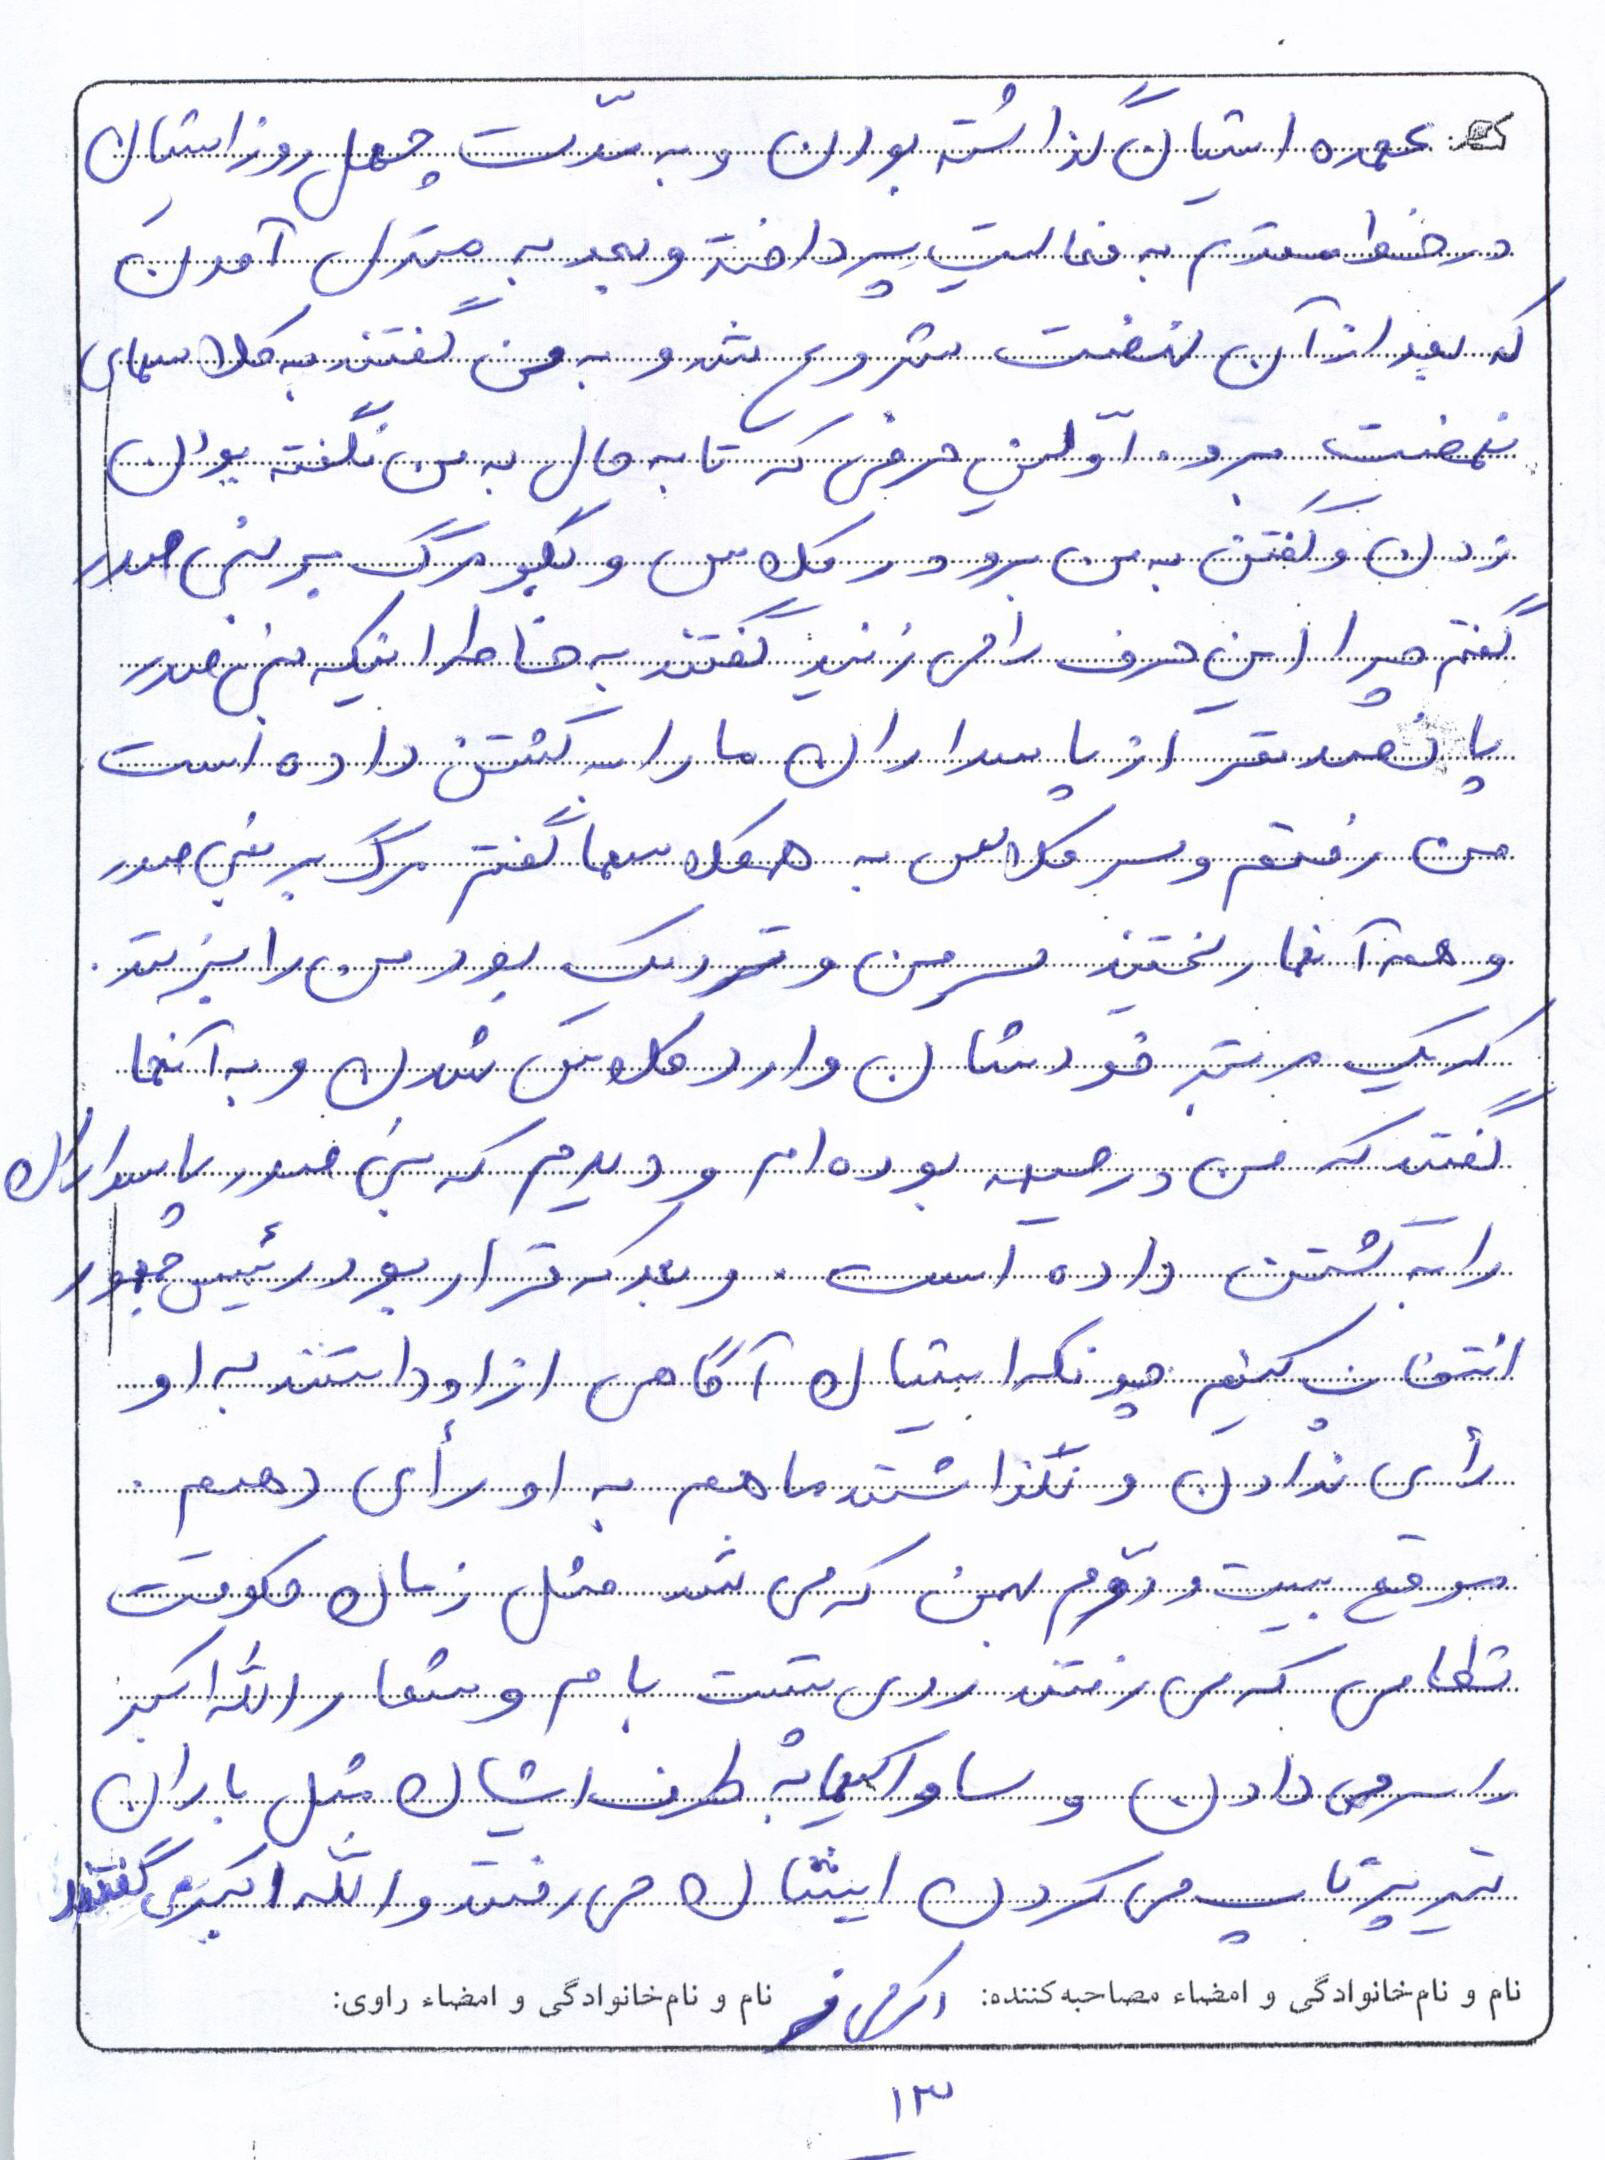 عهده ایشان گذاشته بودن و به مدّت چهل روز ایشان
در خط مقدم به فعالیت پرداختند و بعد به منزل آمدن
که بعد از آن نهضت شروع شد و به من گفتند به کلاسهای
نهضت برو. اوّلین حرفی که تا به حال به من نگفته بودن
زدن و گفتن به من برو در کلاس و بگو مرگ بر بنی صدر
گفتم چرا این حرف را می زنید گفتند به خاطر اینکه بنی صدر
پانصد نفر از پاسداران ما را به کشتن داده است
من رفتم و سر کلاس به همکلاسها گفتم مرگ بر بنی صدر
و همه آنها ریختند سر من و نزدیک بود من را بزنند.
که یک مرتبه خودشان وارد کلاس شدن و به آنها
گفتند که من در جبهه بوده ام و دیدم که بنی صدر پاسداران
را به کشتن داده است. و بعد که قرار بود رئیس جمهور
انتخاب کنیم چونکه ایشان آگاهی از او داشتند به او
رأی ندادن و نگذاشتند ما هم به او رأی دهیم.
موقع بیست و دوّم بهمن که می شد مثل زمان حکومت
نظامی که می رفتند روی پشت بام و شعار الله اکبر
را سر می دادن و ساواکیها به طرف ایشان مثل باران
تیر پرتاب می کردن ایشان می رفتند و الله اکبر می گفتند
نام و نام‌خانوادگی و امضاء مصاحبه‌کننده: اکرمی فر نام و نام‌خانوادگی و امضاء راوی:
۱۳